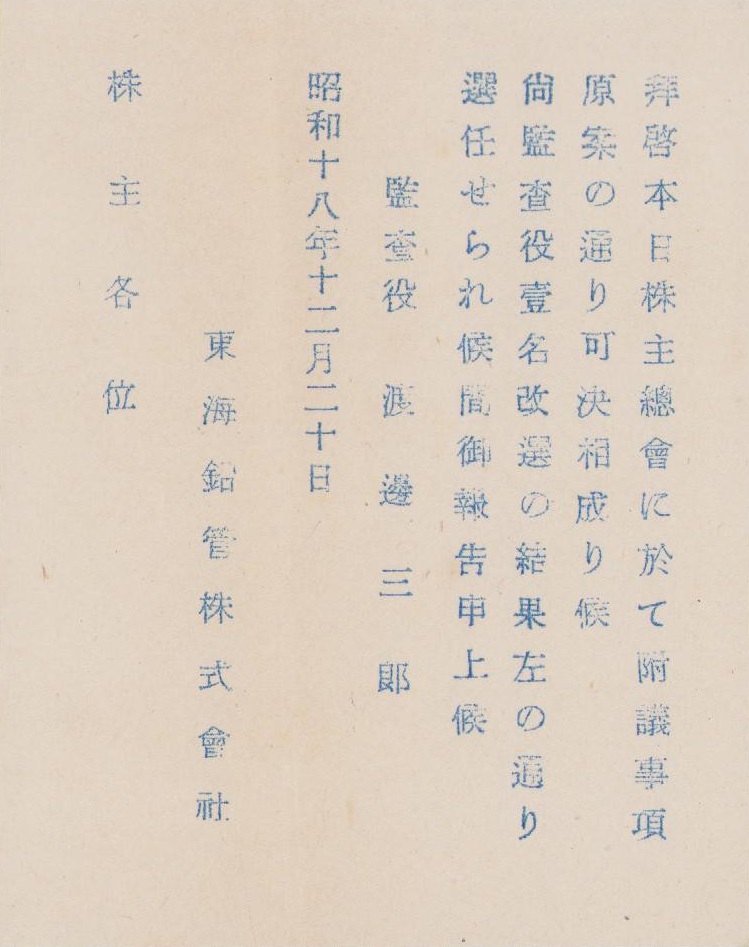 拜啓本日株主總會に於て附議事項
原案の通り可決相成り候
尙監査役壹名改選の結果左の通り
選任せられ候間御報告申上候
監査役　渡邊三郞
昭和十八年十二月二十日
東海鉛管株式會社
株主各位